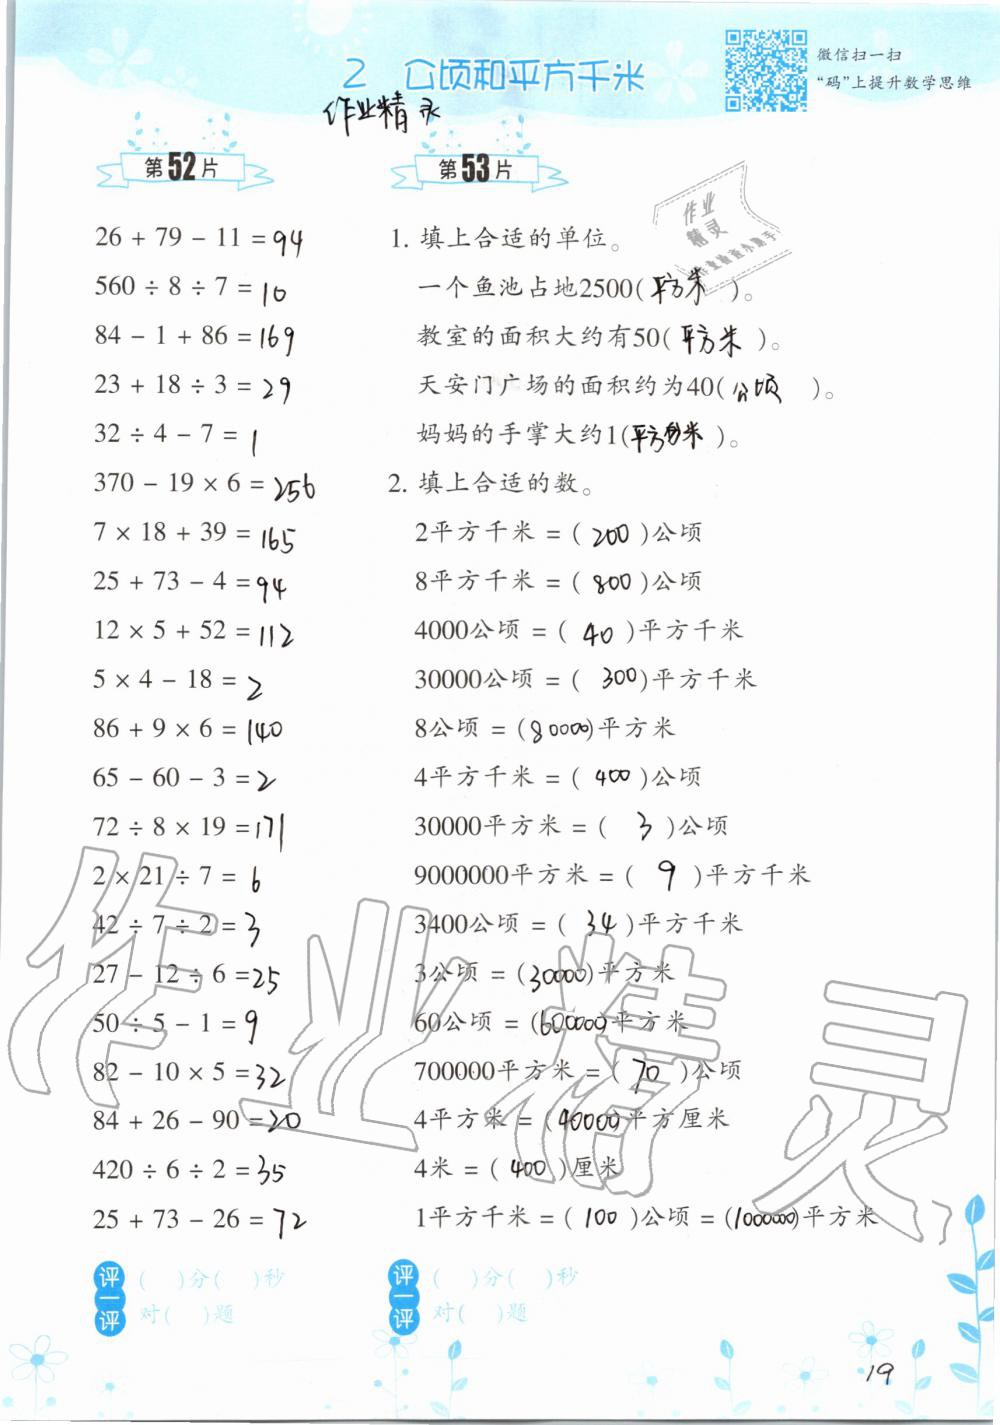 微信扫一扫
“码”上提升数学思维
2 公顷和平方千米
作业精灵
第52片
26 + 79 - 11 = 94
560 ÷ 8 ÷ 7 = 10
84 - 1 + 86 = 169
23 + 18 ÷ 3 = 29
32 ÷ 4 - 7 = 1
370 - 19 × 6 = 256
7 × 18 + 39 = 165
25 + 73 - 4 = 94
12 × 5 + 52 = 112
5 × 4 - 18 = 2
86 + 9 × 6 = 140
65 - 60 - 3 = 2
72 ÷ 8 × 19 = 171
2 × 21 ÷ 7 = 6
42 ÷ 7 ÷ 2 = 3
27 - 12 ÷ 6 = 25
50 ÷ 5 - 1 = 9
82 - 10 × 5 = 32
84 + 26 - 90 = 20
420 ÷ 6 ÷ 2 = 35
25 + 73 - 26 = 72
评一评
( )分( )秒
对( )题
第53片
1. 填上合适的单位。
一个鱼池占地2500(平方米)。
教室的面积大约有50(平方米)。
天安门广场的面积约为40(公顷)。
妈妈的手掌大约1(平方分米)。
2. 填上合适的数。
2平方千米 = (200)公顷
8平方千米 = (800)公顷
4000公顷 = (40)平方千米
30000公顷 = (300)平方千米
8公顷 = (80000)平方米
4平方千米 = (400)公顷
30000平方米 = (3)公顷
9000000平方米 = (9)平方千米
3400公顷 = (34)平方千米
3公顷 = (30000)平方米
60公顷 = (600000)平方米
700000平方米 = (70)公顷
4平方米 = (40000)平方厘米
4米 = (400)厘米
1平方千米 = (100)公顷 = (1000000)平方米
评一评
( )分( )秒
对( )题
19
作业
精灵
作业精灵